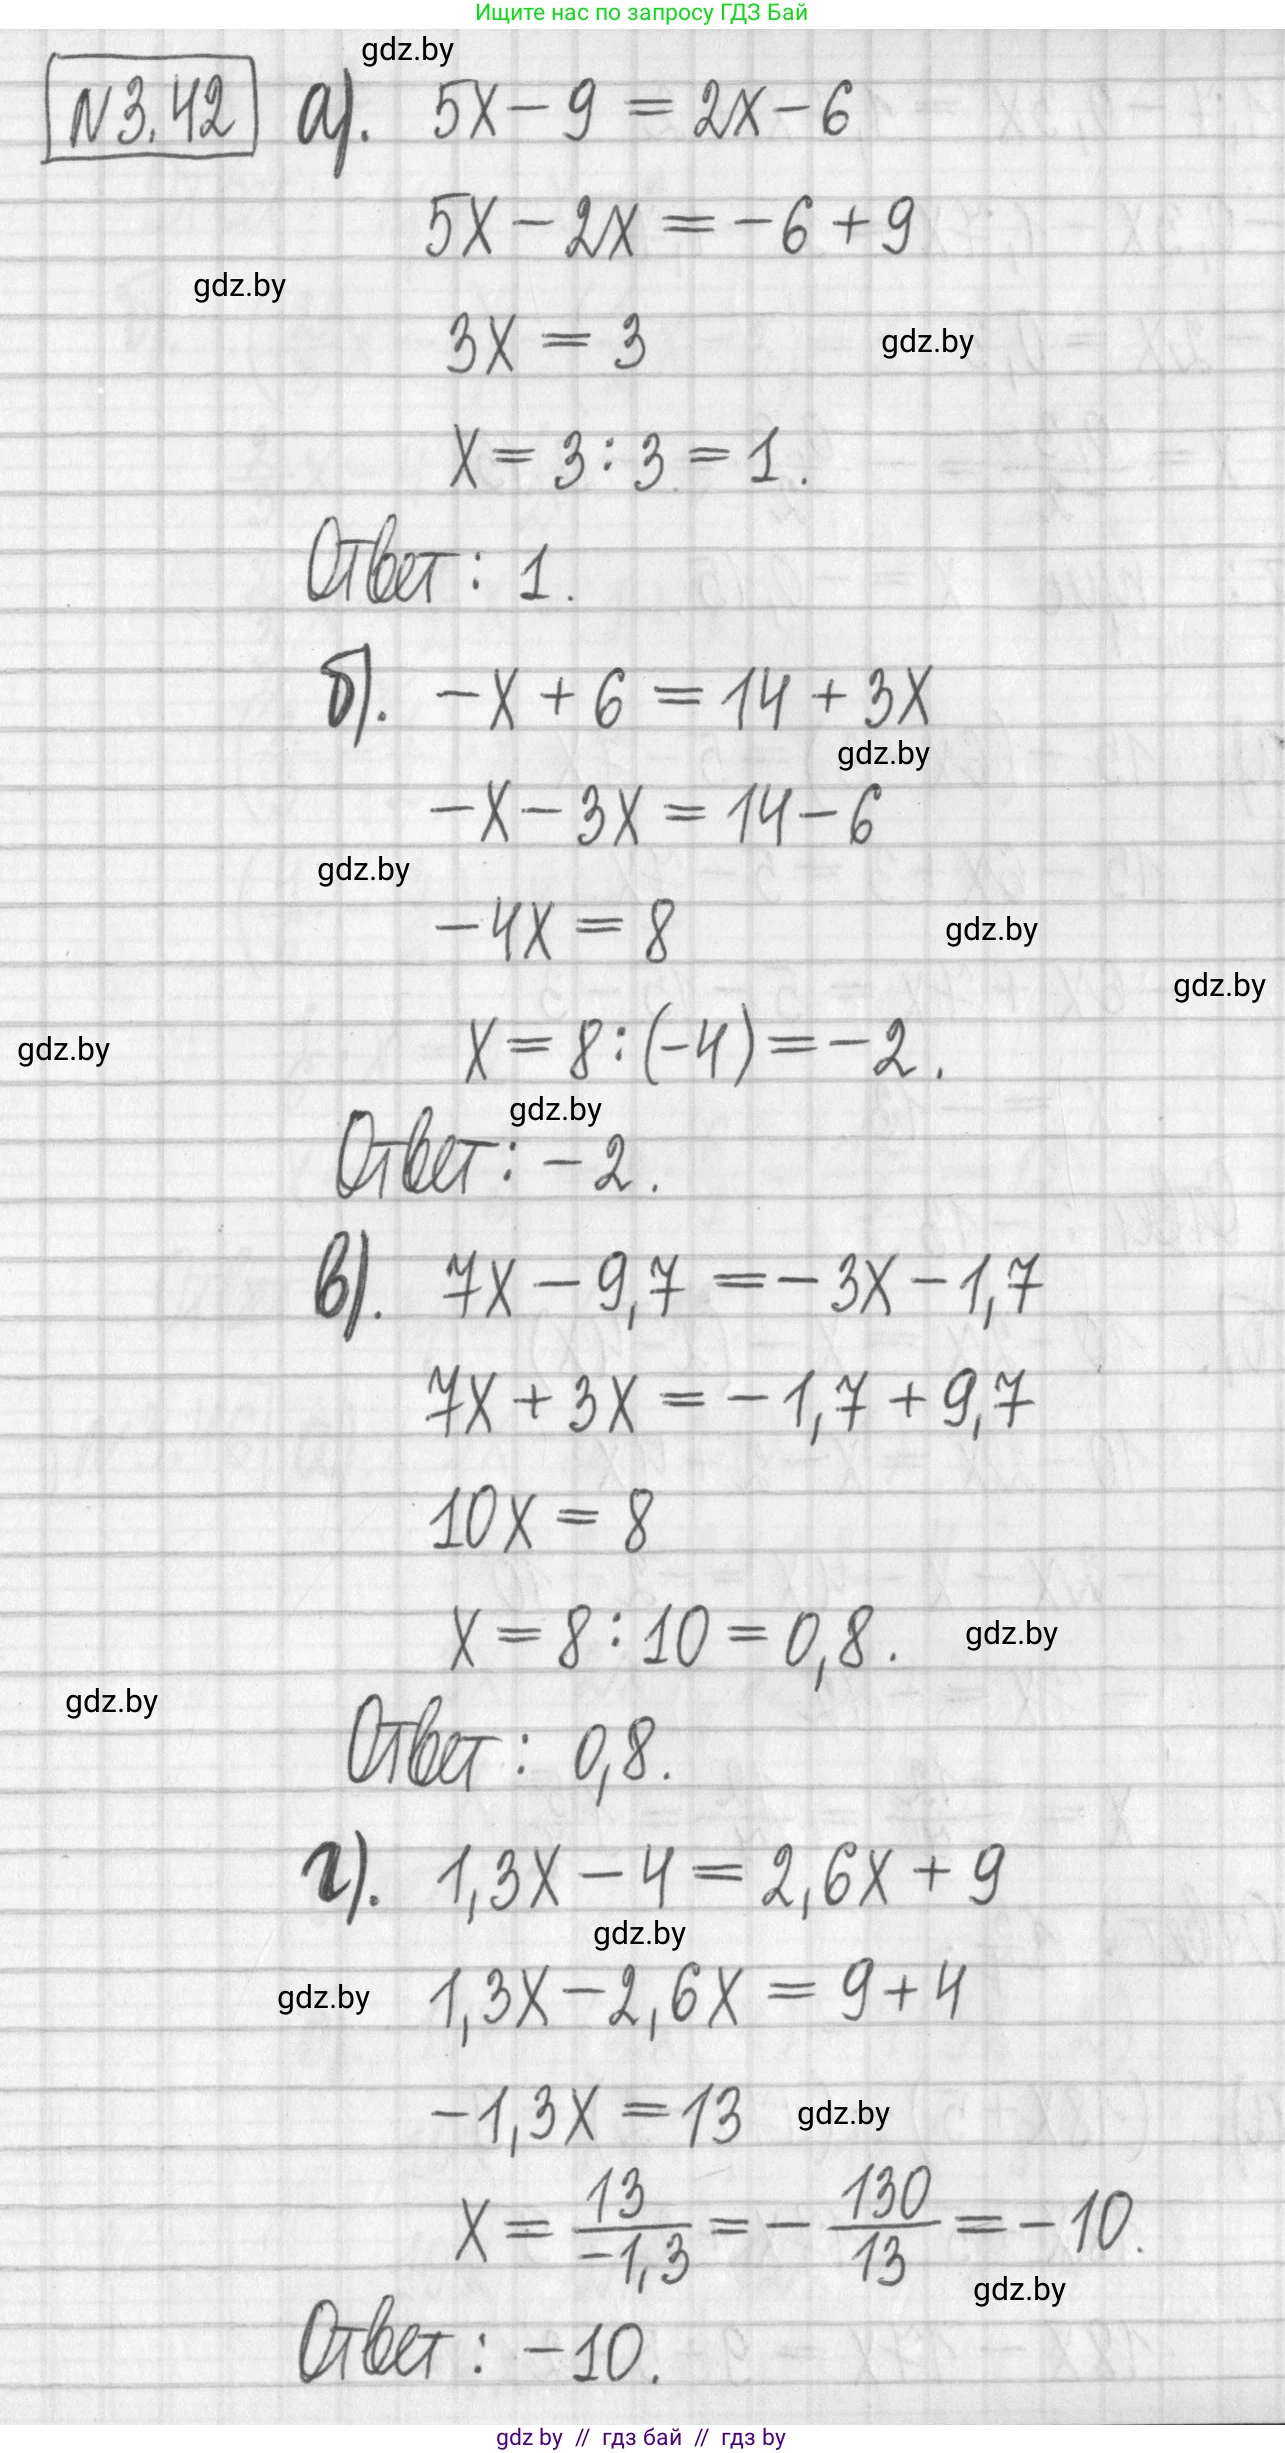 Ищите нас по запросу ГДЗ Бай
gdz.by
N3.42 а). 5x - 9 = 2x - 6
5x - 2x = -6 + 9
gdz.by
3x = 3
gdz.by
x = 3 : 3 = 1.
Ответ: 1.
б). -x + 6 = 14 + 3x
gdz.by
-x - 3x = 14 - 6
gdz.by
-4x = 8
gdz.by
gdz.by
x = 8 : (-4) = -2.
gdz.by
gdz.by
Ответ: -2.
в). 7x - 9,7 = -3x - 1,7
7x + 3x = -1,7 + 9,7
10x = 8
x = 8 : 10 = 0,8.
gdz.by
gdz.by
Ответ: 0,8.
г). 1,3x - 4 = 2,6x + 9
gdz.by
1,3x - 2,6x = 9 + 4
gdz.by
-1,3x = 13
gdz.by
x = 13/-1,3 = - 130/13 = -10.
gdz.by
Ответ: -10.
gdz by // гдз бай // гдз by